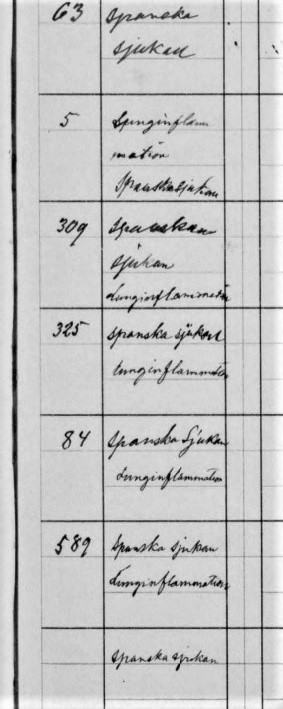 63 spanska
sjukan
5 Lunginflam
mation
Spanskasjukan
309 Spanskan
sjukan
Lunginflammation
325 spanska sjukan
lunginflammation
84 spanska Sjukan
Lunginflammation
589 spanska sjukan
Lunginflammation
spanska sjukan